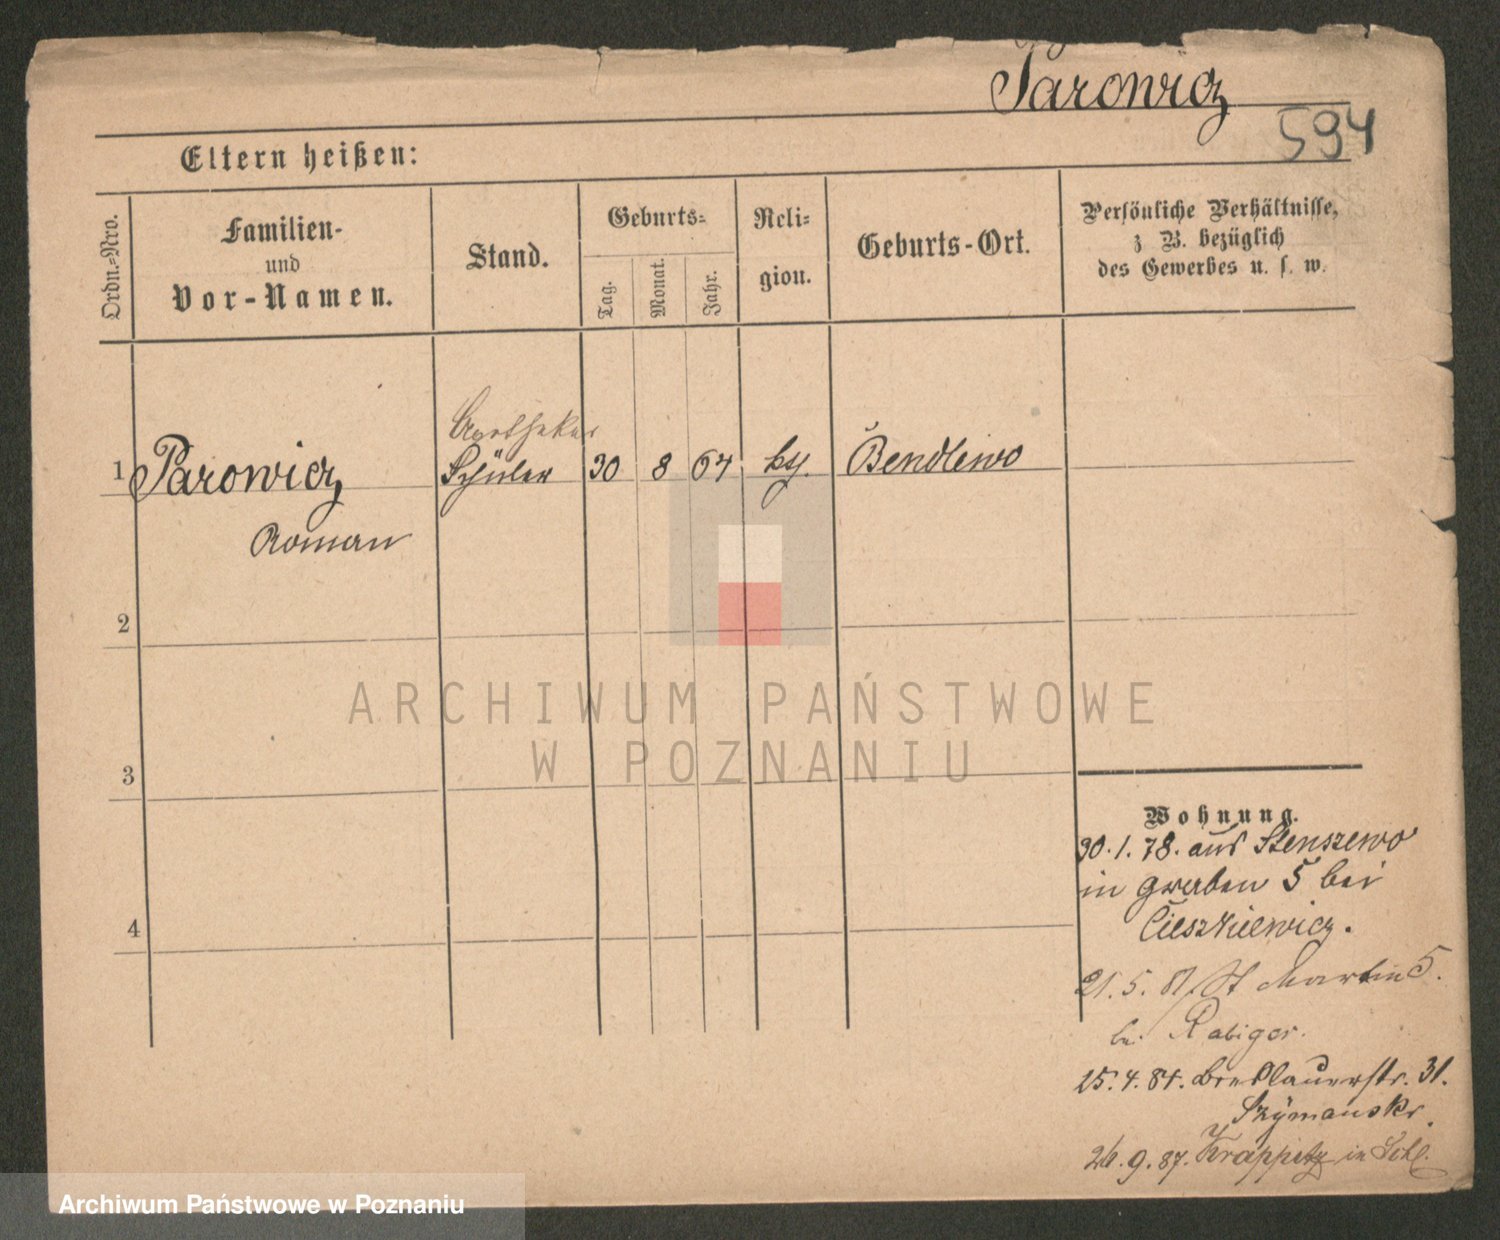 Parowicz
594
Eltern heißen:
Ordn.-Nro.
Familien-
und
Vor-Namen.
Stand.
Geburts-
Tag.
Monat.
Jahr.
Reli-
gion.
Geburts-Ort.
Persönliche Verhältnisse,
z B. bezüglich
des Gewerbes u. s. w.
Apotheker
1 Parowicz Schüler 30 8 67 Bendlewo
Roman
2
3
4
Wohnung.
30.1.78. aus Stenszewo
in Graben 5 bei
Cieszkiewicz.
21.5. St Martin 5.
bei Rabiger.
15.4. Breslauerstr. 31.
Szymanski.
26.9.87. Krappitz in Schl.
ARCHIWUM PAŃSTWOWE
W POZNANIU
Archiwum Państwowe w Poznaniu